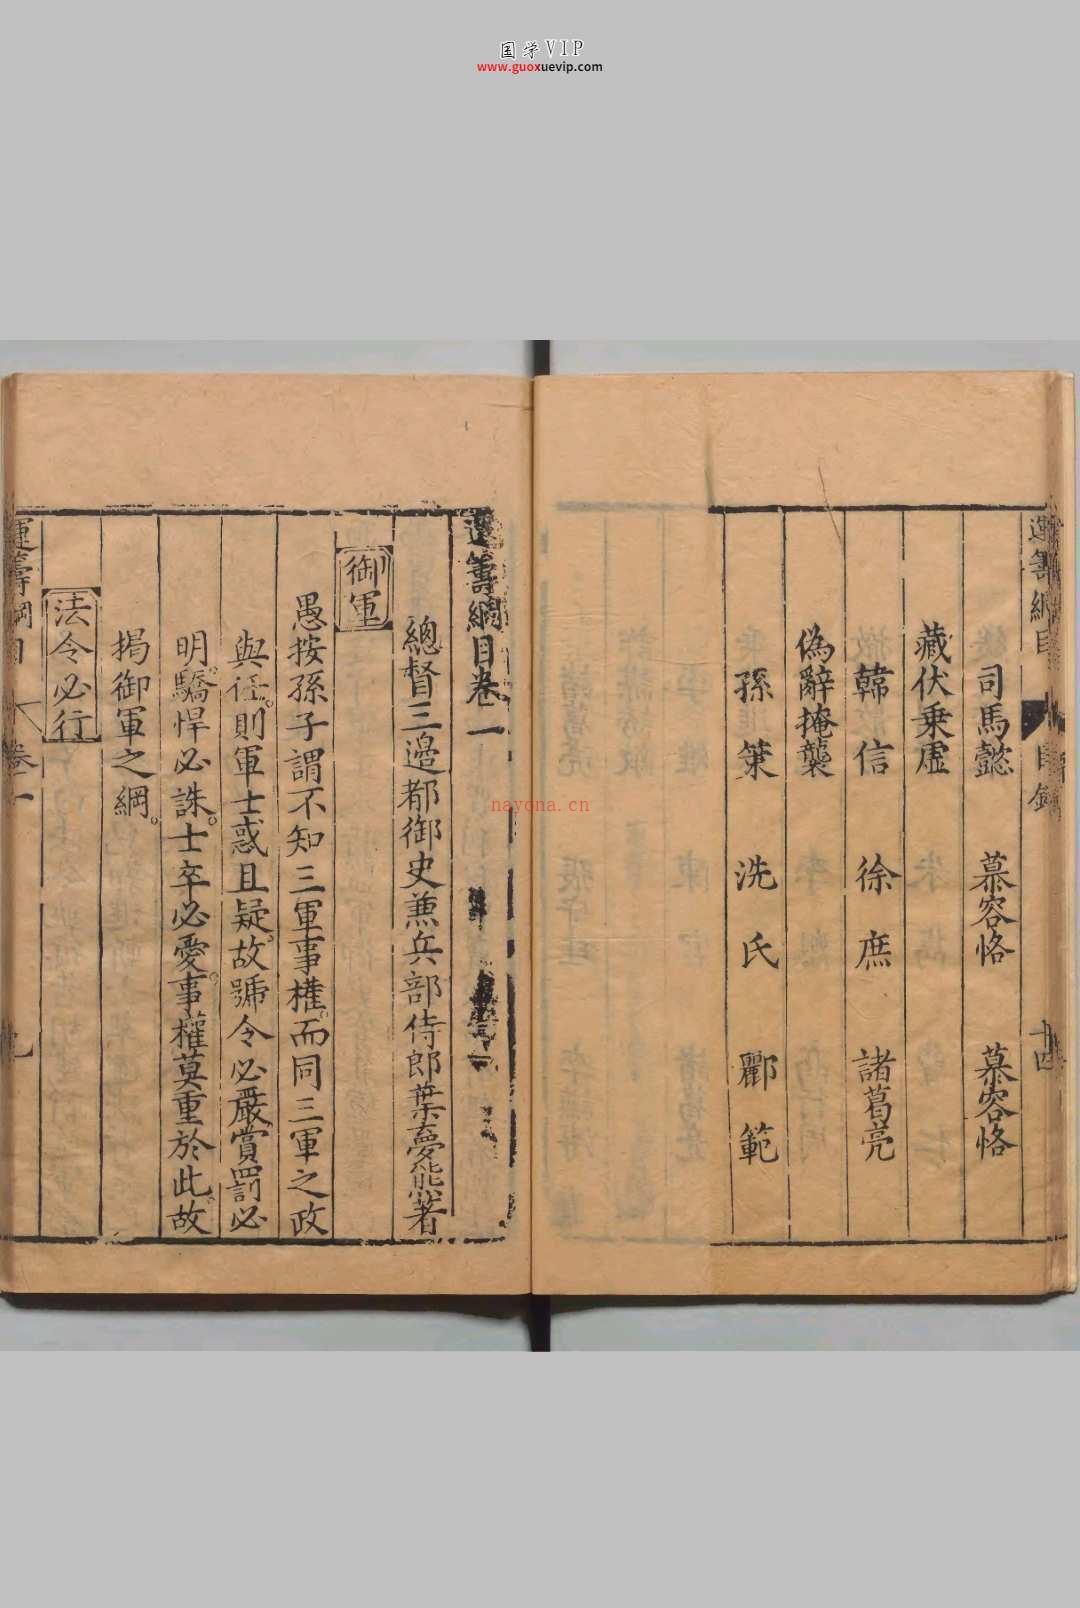 国学VIP
www.guoxuevip.com
運籌綱目
目錄
十四
司馬懿 慕容恪 慕容恪
藏伏乗虛
韓信 徐庶 諸葛亮
偽辭掩襲
孫策 洗氏 酈範
nayona.cn
運籌綱目卷一
總督三邊都御史兼兵部侍郎葉夢熊著
御軍
愚按孫子謂不知三軍事權。而同三軍之政
與任。則軍士惑且疑。故號令必嚴賞罰必
明。驕悍必誅。士卒必愛。事權莫重於此。故
揭御軍之綱。
法令必行
運籌綱目
卷一